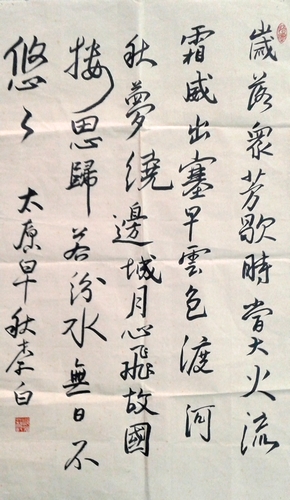 歲落衆芳歇時當大火流
霜威出塞早雲色渡河
秋夢繞邊城月心飛故國
樓思歸若汾水無日不
悠〻太原早秋李白